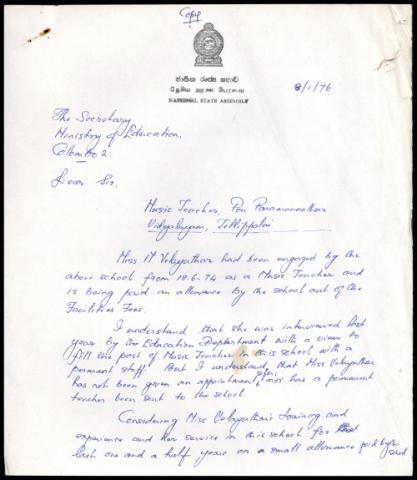 Copy
ජාතික රාජ්‍ය සභාව
தேசிய அரசுப் பேரவை
NATIONAL STATE ASSEMBLY
8/1/76
The Secretary
Ministry of Education,
Colombo 2.
Dear Sir,
Music Teacher, Pon Paramananthar
Vidyalayam, Tellippalai
Miss M Velayuthar had been engaged by the
above school from 18-6-74 as a Music Teacher and
is being paid an allowance by the school out of the
Facilities Fees.
I understand that she was interviewed last
year by the Education Department with a view to
fill the post of Music Teacher in this school with a
permant staff. But I understand, that Miss Velayuthar
has not been given an appointment, nor has a permanent
teacher been sent to the school.
Considering Miss Velayuthar's training and
experience and her service in this school for the
last one and a half years on a small allowance paid by